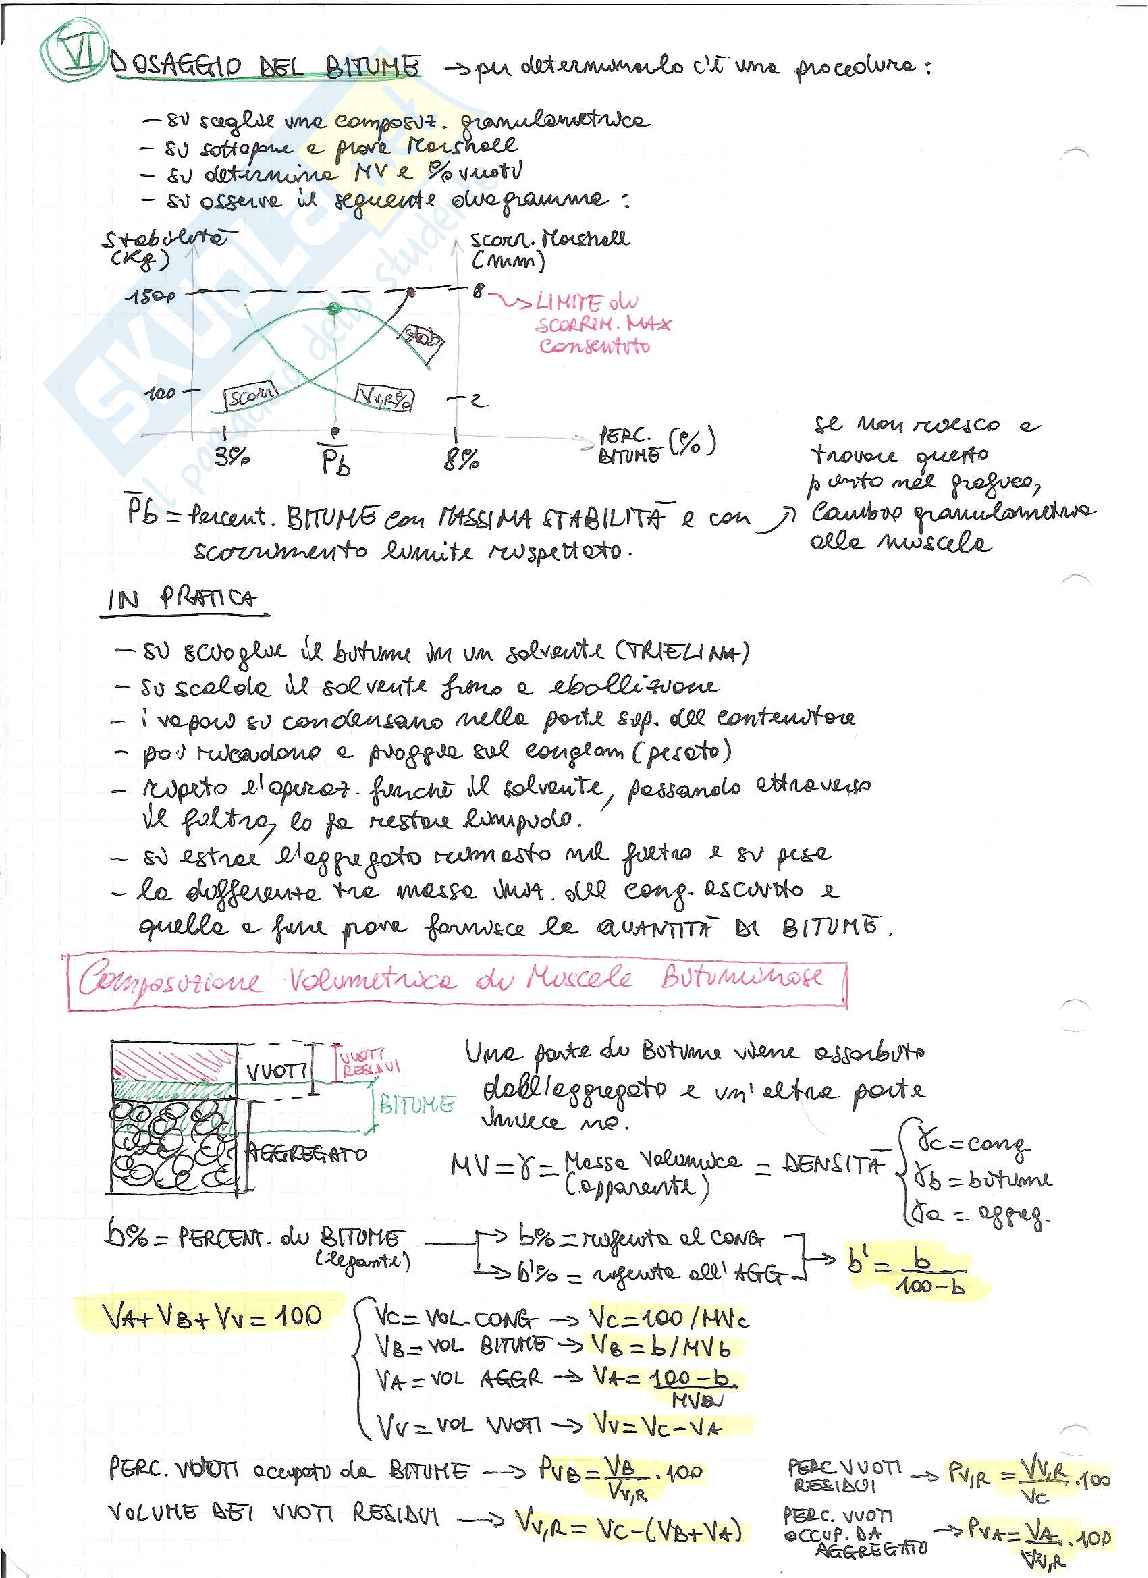 VI DOSAGGIO DEL BITUME → per determinarlo c'è una procedura:
- si sceglie una composiz. granulometrica
- si sottopone a prova Marshall
- si determina MV e % vuoti
- si osserva il seguente diagramma:
Stabilità (Kg)
Scorr. Marshall (mm)
1500
8 → LIMITE di SCORRIM. MAX consentito
Stab
100
Scorr
Vv,R%
2
3%
P̅b
8%
PERC. BITUME (%)
P̅b = Percent. BITUME con MASSIMA STABILITÀ e con
scorrimento limite rispettato.
se non riesco a
trovare questo
punto nel grafico,
cambio granulometria
alla miscela
IN PRATICA
- si scioglie il bitume in un solvente (TRIELINA)
- si scalda il solvente fino a ebollizione
- i vapori si condensano nella parte sup. del contenitore
- poi ricadono a pioggia sul conglom (pesato)
- ripeto l'operaz. finchè il solvente, passando attraverso
il filtro, lo fa restare limpido.
- si estrae l'aggregato rimasto nel filtro e si pesa
- la differenza tra massa iniz. del cong. asciutto e
quella a fine prova fornisce la QUANTITÀ DI BITUME.
Composizione Volumetrica di Miscele Bituminose
VUOTI
VUOTI RESIDUI
BITUME
AGGREGATO
Una parte di Bitume viene assorbito
dall'aggregato e un'altra parte
invece no.
MV = γ = Massa Volumica (apparente) = DENSITÀ
γc = cong
γb = bitume
γa = aggreg.
b% = PERCENT. di BITUME (legante)
→ b% = riferita al CONG
→ b'% = riferita all'AGG
→ b' = b / 100-b
VA + VB + Vv = 100
Vc = VOL. CONG → Vc = 100/MVc
VB = VOL BITUME → VB = b/MVb
VA = VOL AGGR → VA = 100-b / MVa
Vv = VOL VUOTI → Vv = Vc - VA
PERC. VUOTI occupato da BITUME → PVB = VB / Vv,R · 100
PERC. VUOTI RESIDUI → Pv,R = Vv,R / Vc · 100
VOLUME DEI VUOTI RESIDUI → Vv,R = Vc - (VB + VA)
PERC. VUOTI OCCUP. DA AGGREGATO → PVA = VA / Vv,R · 100
SKUOLA.net
il paradiso dello studente